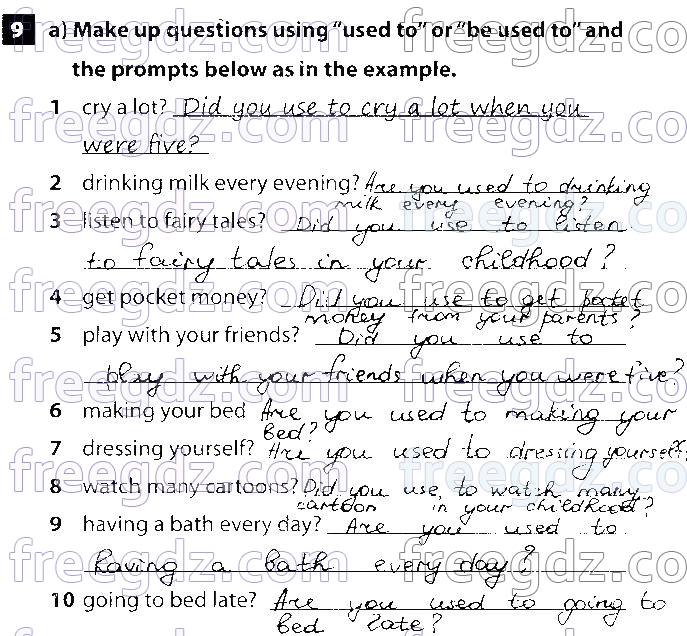 9 a) Make up questions using “used to” or “be used to” and
the prompts below as in the example.
1 cry a lot? Did you use to cry a lot when you
were five?
2 drinking milk every evening? Are you used to drinking
milk every evening?
3 listen to fairy tales? Did you use to listen
to fairy tales in your childhood?
4 get pocket money? Did you use to get pocket
money from your parents?
5 play with your friends? Did you use to
play with your friends when you were five?
6 making your bed Are you used to making your
bed?
7 dressing yourself? Are you used to dressing yourself?
8 watch many cartoons? Did you use to watch many
cartoon in your childhood?
9 having a bath every day? Are you used to
having a bath every day?
10 going to bed late? Are you used to going to
bed late?
freegdz.com